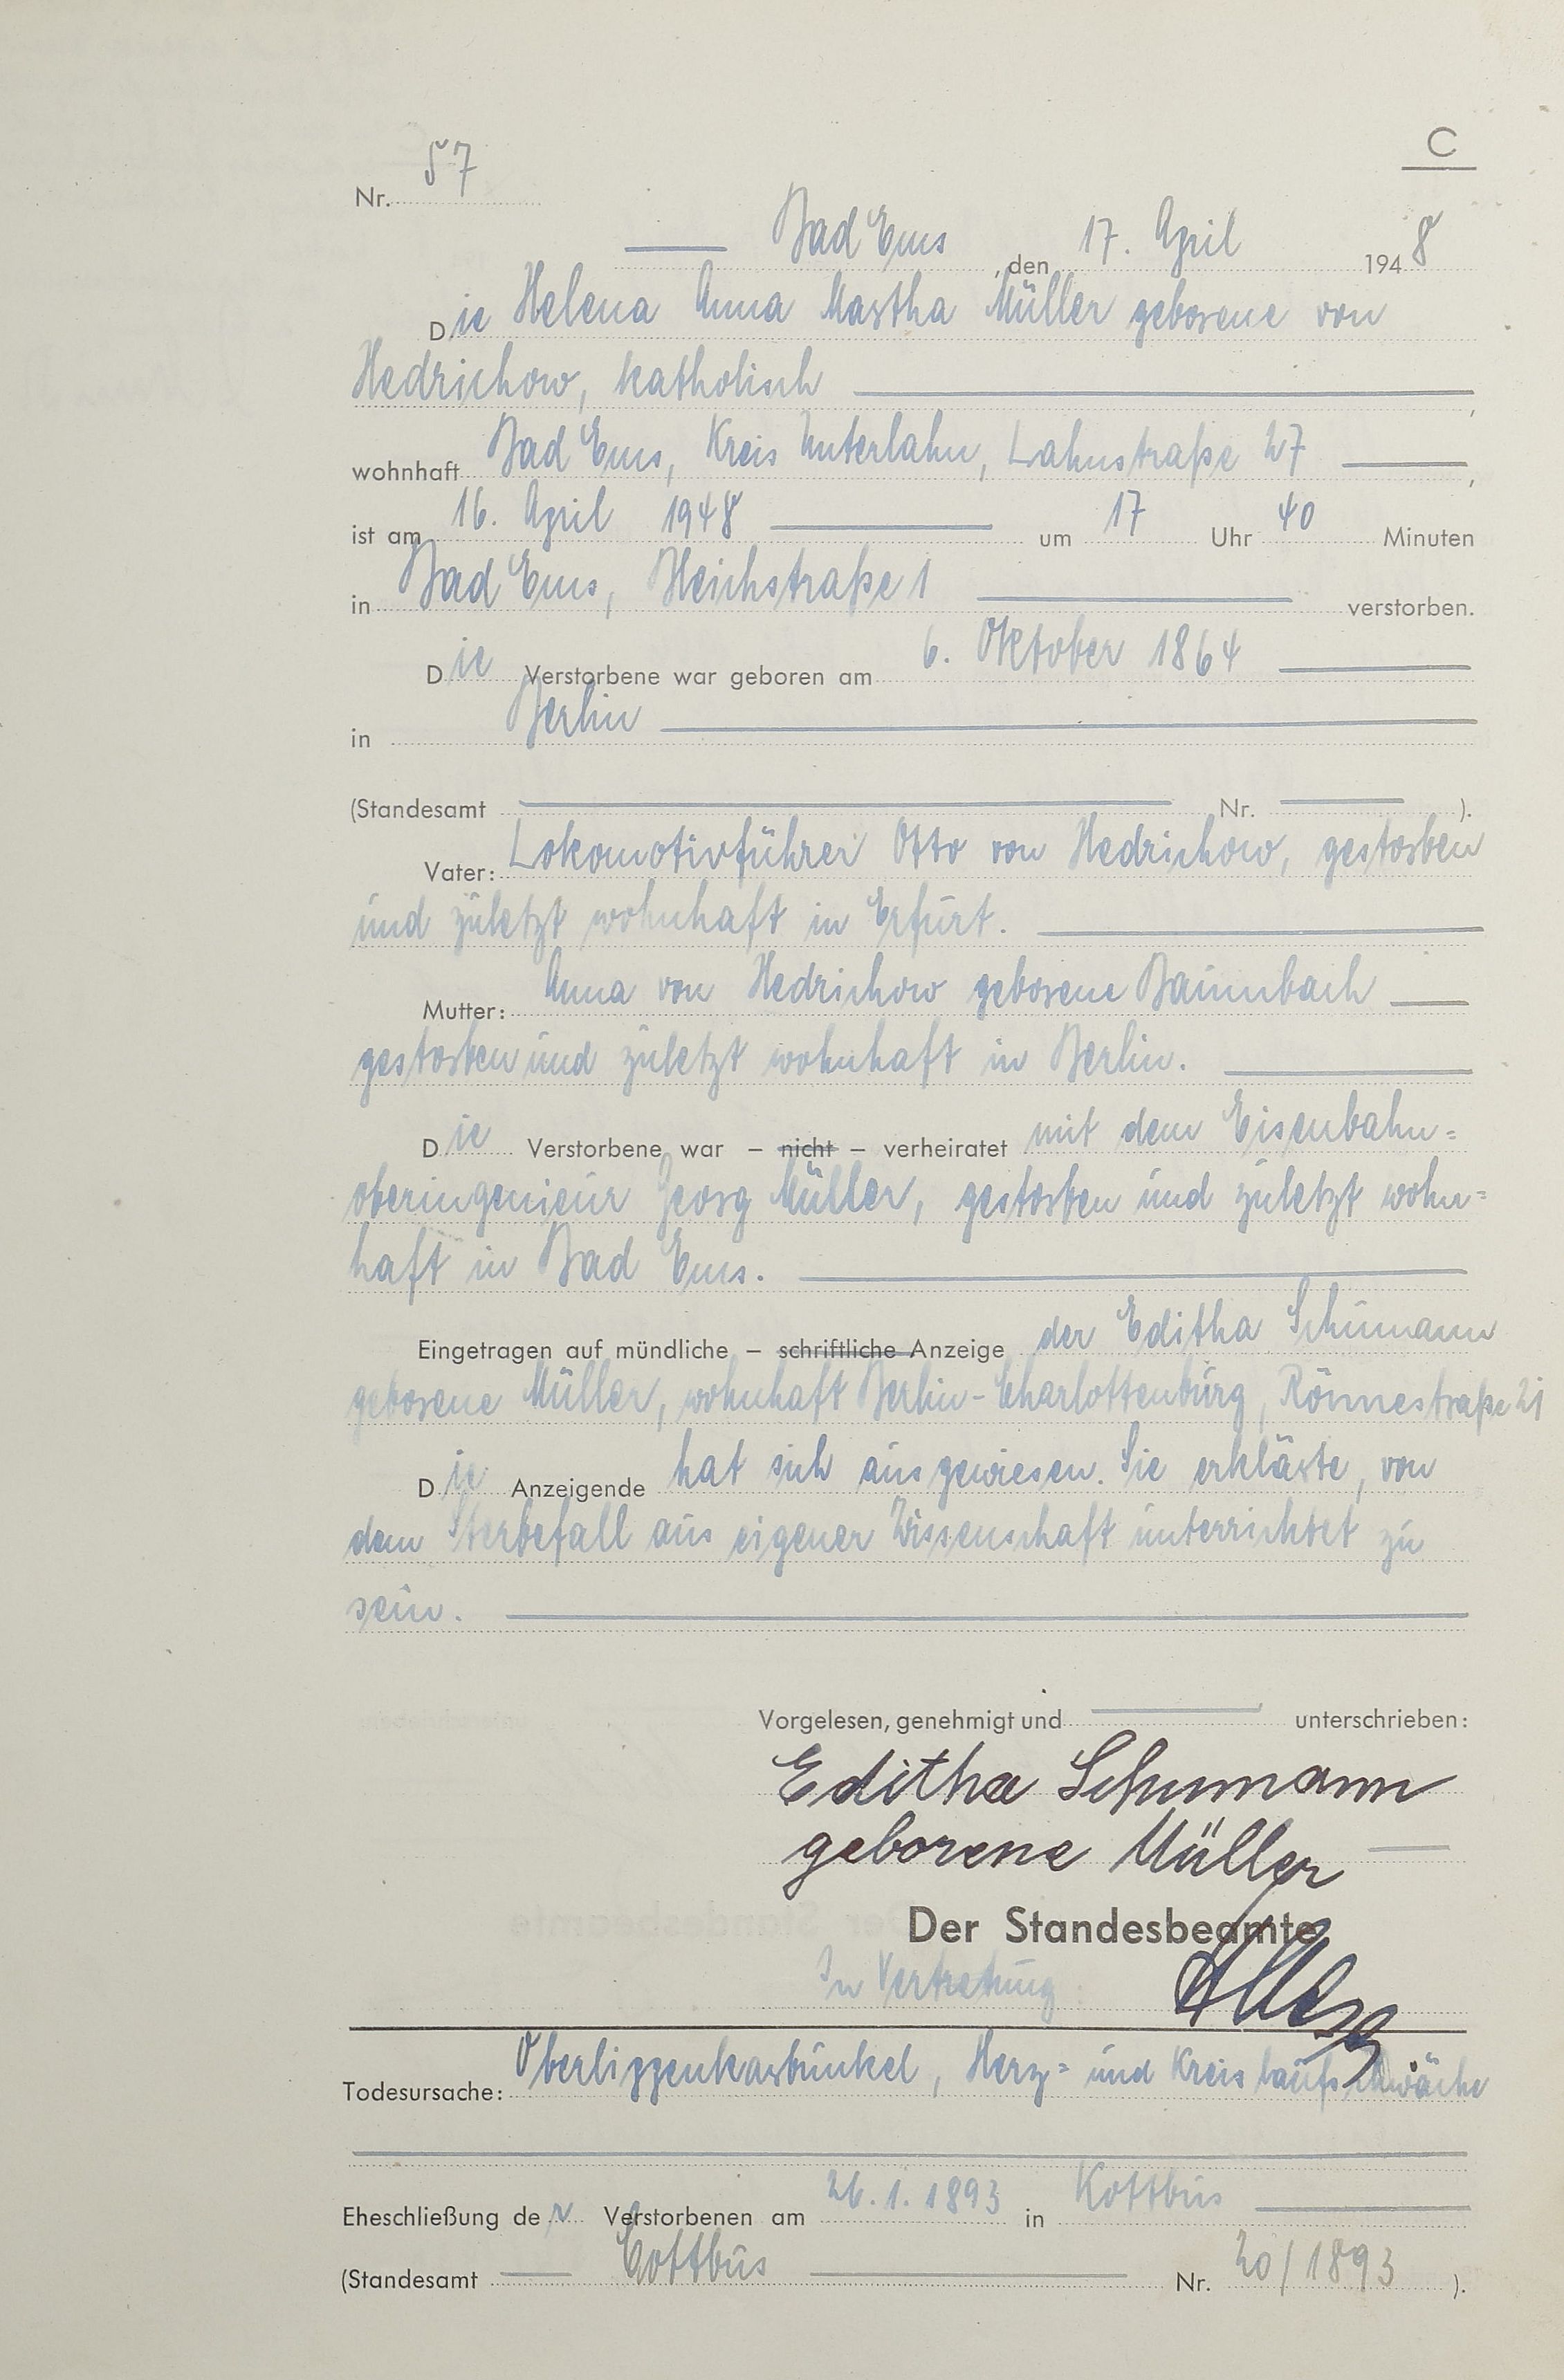 C
Nr. 57
Bad Ems, den 17. April 1948
Die Helena Anna Martha Müller geborene von
Hedrichow, katholisch,
wohnhaft Bad Ems, Kreis Unterlahn, Lahnstraße 27,
ist am 16. April 1948 um 17 Uhr 40 Minuten
in Bad Ems, Bleichstraße 1 verstorben.
Die Verstorbene war geboren am 6. Oktober 1864
in Berlin
(Standesamt Nr. ).
Vater: Lokomotivführer Otto von Hedrichow, gestorben
und zuletzt wohnhaft in Erfurt.
Mutter: Anna von Hedrichow geborene Baumbach
gestorben und zuletzt wohnhaft in Berlin.
Die Verstorbene war – nicht – verheiratet mit dem Eisenbahn=
oberingenieur Georg Müller, gestorben und zuletzt wohn=
haft in Bad Ems.
Eingetragen auf mündliche – schriftliche Anzeige der Editha Schumann
geborene Müller, wohnhaft Berlin-Charlottenburg, Rönnestraße 21
Die Anzeigende hat sich ausgewiesen. Sie erklärte, von
dem Sterbefall aus eigener Wissenschaft unterrichtet zu
sein.
Vorgelesen, genehmigt und unterschrieben:
Editha Schumann
geborene Müller
Der Standesbeamte
In Vertretung
Todesursache: Oberlippenkarbunkel, Herz= und Kreislaufschwäche
Eheschließung der Verstorbenen am 26.1.1893 in Kottbus
(Standesamt Cottbus Nr. 20/1893 ).